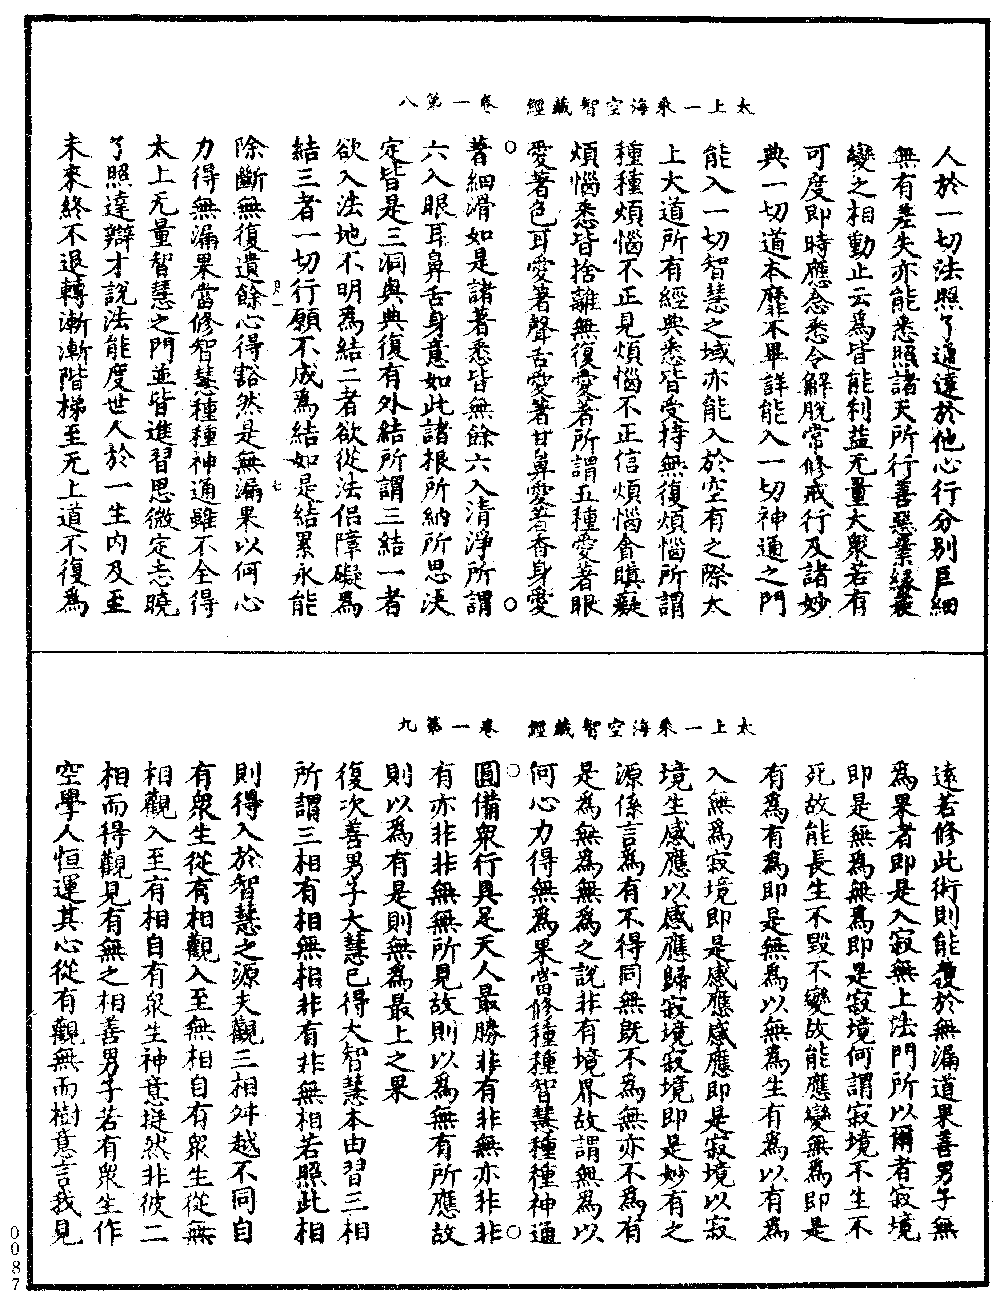 太上一乗海空智藏經　卷一第八
人於一切法照了通達於他心行分別巨細
無有差失亦能悉照諸天所行善惡業緣衰
變之相動止云為皆能利益无量大衆若有
可度即時應念悉令解脫常修戒行及諸妙
典一切道本靡不畢詳能入一切神通之門
能入一切智慧之域亦能入於空有之際太
上大道所有經典悉皆受持無復煩惱所謂
種種煩惱不正見煩惱不正信煩惱貪瞋癡
煩惱悉皆捨離無復愛著所謂五種愛著眼
愛著色耳愛著聲舌愛著甘鼻愛著香身愛
著細滑如是諸著悉皆無餘六入清淨所謂
六入眼耳鼻舌身意如此諸根所納所思決
定皆是三洞奥典復有外結所謂三結一者
欲入法地不明為結二者欲從法侶障礙為
結三者一切行願不成為結如是結累永能
除斷無復遺餘心得豁然是無漏果以何心
力得無漏果當修智慧種種神通雖不全得
太上无量智慧之門並皆進習思微定志曉
了照達辯才說法能度世人於一生內及至
未來終不退轉漸漸階梯至无上道不復為
太上一乗海空智藏經　卷一第九
遠若修此術則能復於無漏道果善男子無
為果者即是入寂無上法門所以爾者寂境
即是無為無為即是寂境何謂寂境不生不
死故能長生不毀不變故能應變無為即是
有為有為即是無為以無為生有為以有為
入無為寂境即是感應感應即是寂境以寂
境生感應以感應歸寂境寂境即是妙有之
源係言為有不得同無既不為無亦不為有
是為無為無為之說非有境界故謂無為以
何心力得無為果當修種種智慧種種神通
圓備衆行具足天人最勝非有非無亦非非
有亦非非無無所見故則以為無有所應故
則以為有是則無為最上之果
復次善男子大慧已得大智慧本由習三相
所謂三相有相無相非有非無相若照此相
則得入於智慧之源夫觀三相舛越不同自
有衆生從有相觀入至無相自有衆生從無
相觀入至有相自有衆生神意挺然非彼二
相而得觀見有無之相善男子若有衆生作
空學人恒運其心從有觀無而樹意言我見
0087